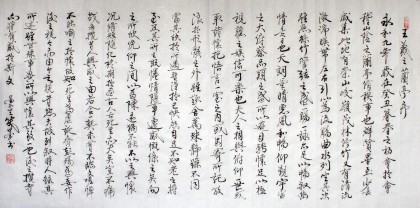 王羲之蘭亭序
永和九年歲在癸丑暮春之初會於會
稽山陰之蘭亭修禊事也群賢畢至少長
咸集此地有崇山峻嶺茂林修竹又有清流
激湍映帶左右引以為流觴曲水列坐其次
雖無絲竹管弦之盛一觴一詠亦足以暢敘幽
情是日也天朗氣清惠風和暢仰觀宇宙
之大俯察品類之盛所以遊目騁懷足以極
視聽之娛信可樂也夫人之相與俯仰一世或
取諸懷抱悟言一室之內或因寄所託放
浪形骸之外雖趣舍萬殊靜躁不同
當其欣於所遇暫得於己快然自足不知老之將
至及其所之既倦情隨事遷感慨係之矣向
之所欣俯仰之間已為陳跡猶不能不以之興懷
況修短隨化終期於盡古人云死生亦大矣豈不痛
哉每覽昔人興感之由若合一契未嘗不臨文嗟悼
不能喻之於懷固知一死生為虛誕齊彭殤為妄作
後之視今亦猶今之視昔悲夫故列敘時人錄其
所述雖世殊事異所以興懷其致一也後之攬者
亦將有感於斯文 書